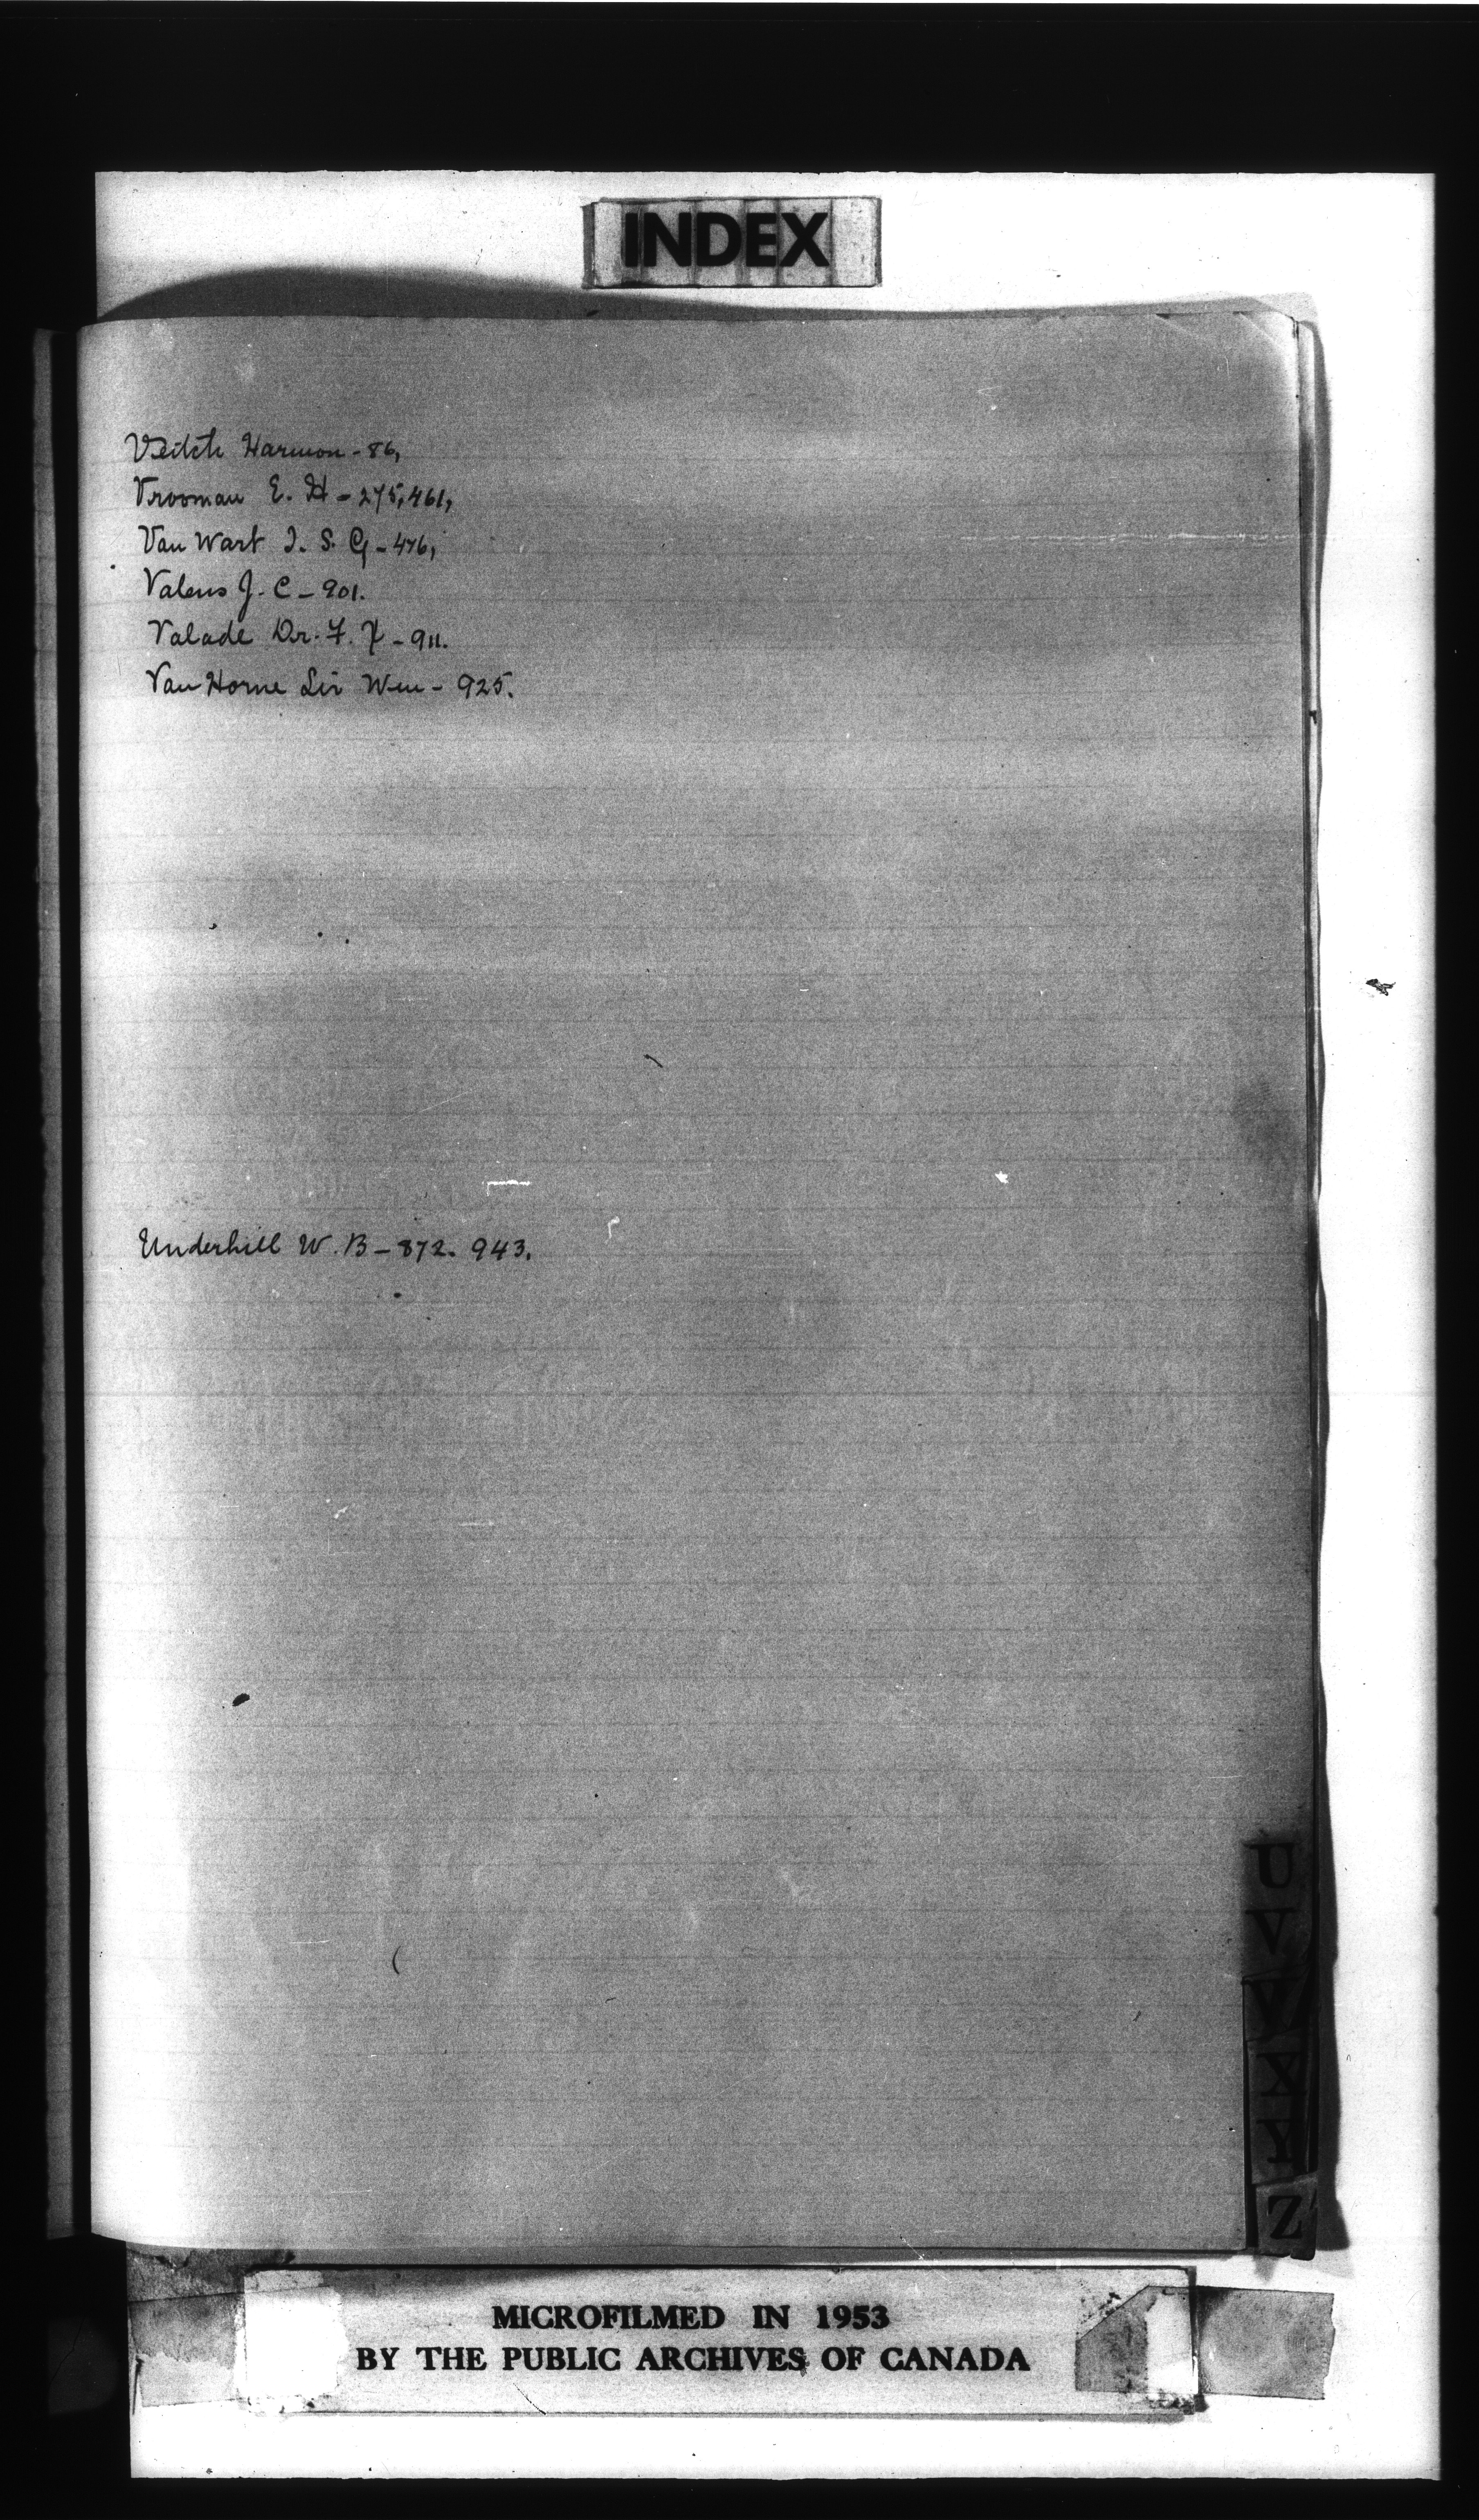 INDEX
Veitch Harmon - 86,
Vrooman E. H - 275, 461,
Van Wart I. S. G - 476,
Valens J. C - 901.
Valade Dr. F. X - 911.
Van Horne Sir Wm - 925.
Underhill W. B - 872. 943.
U
V
W
X
Y
Z
MICROFILMED IN 1953
BY THE PUBLIC ARCHIVES OF CANADA